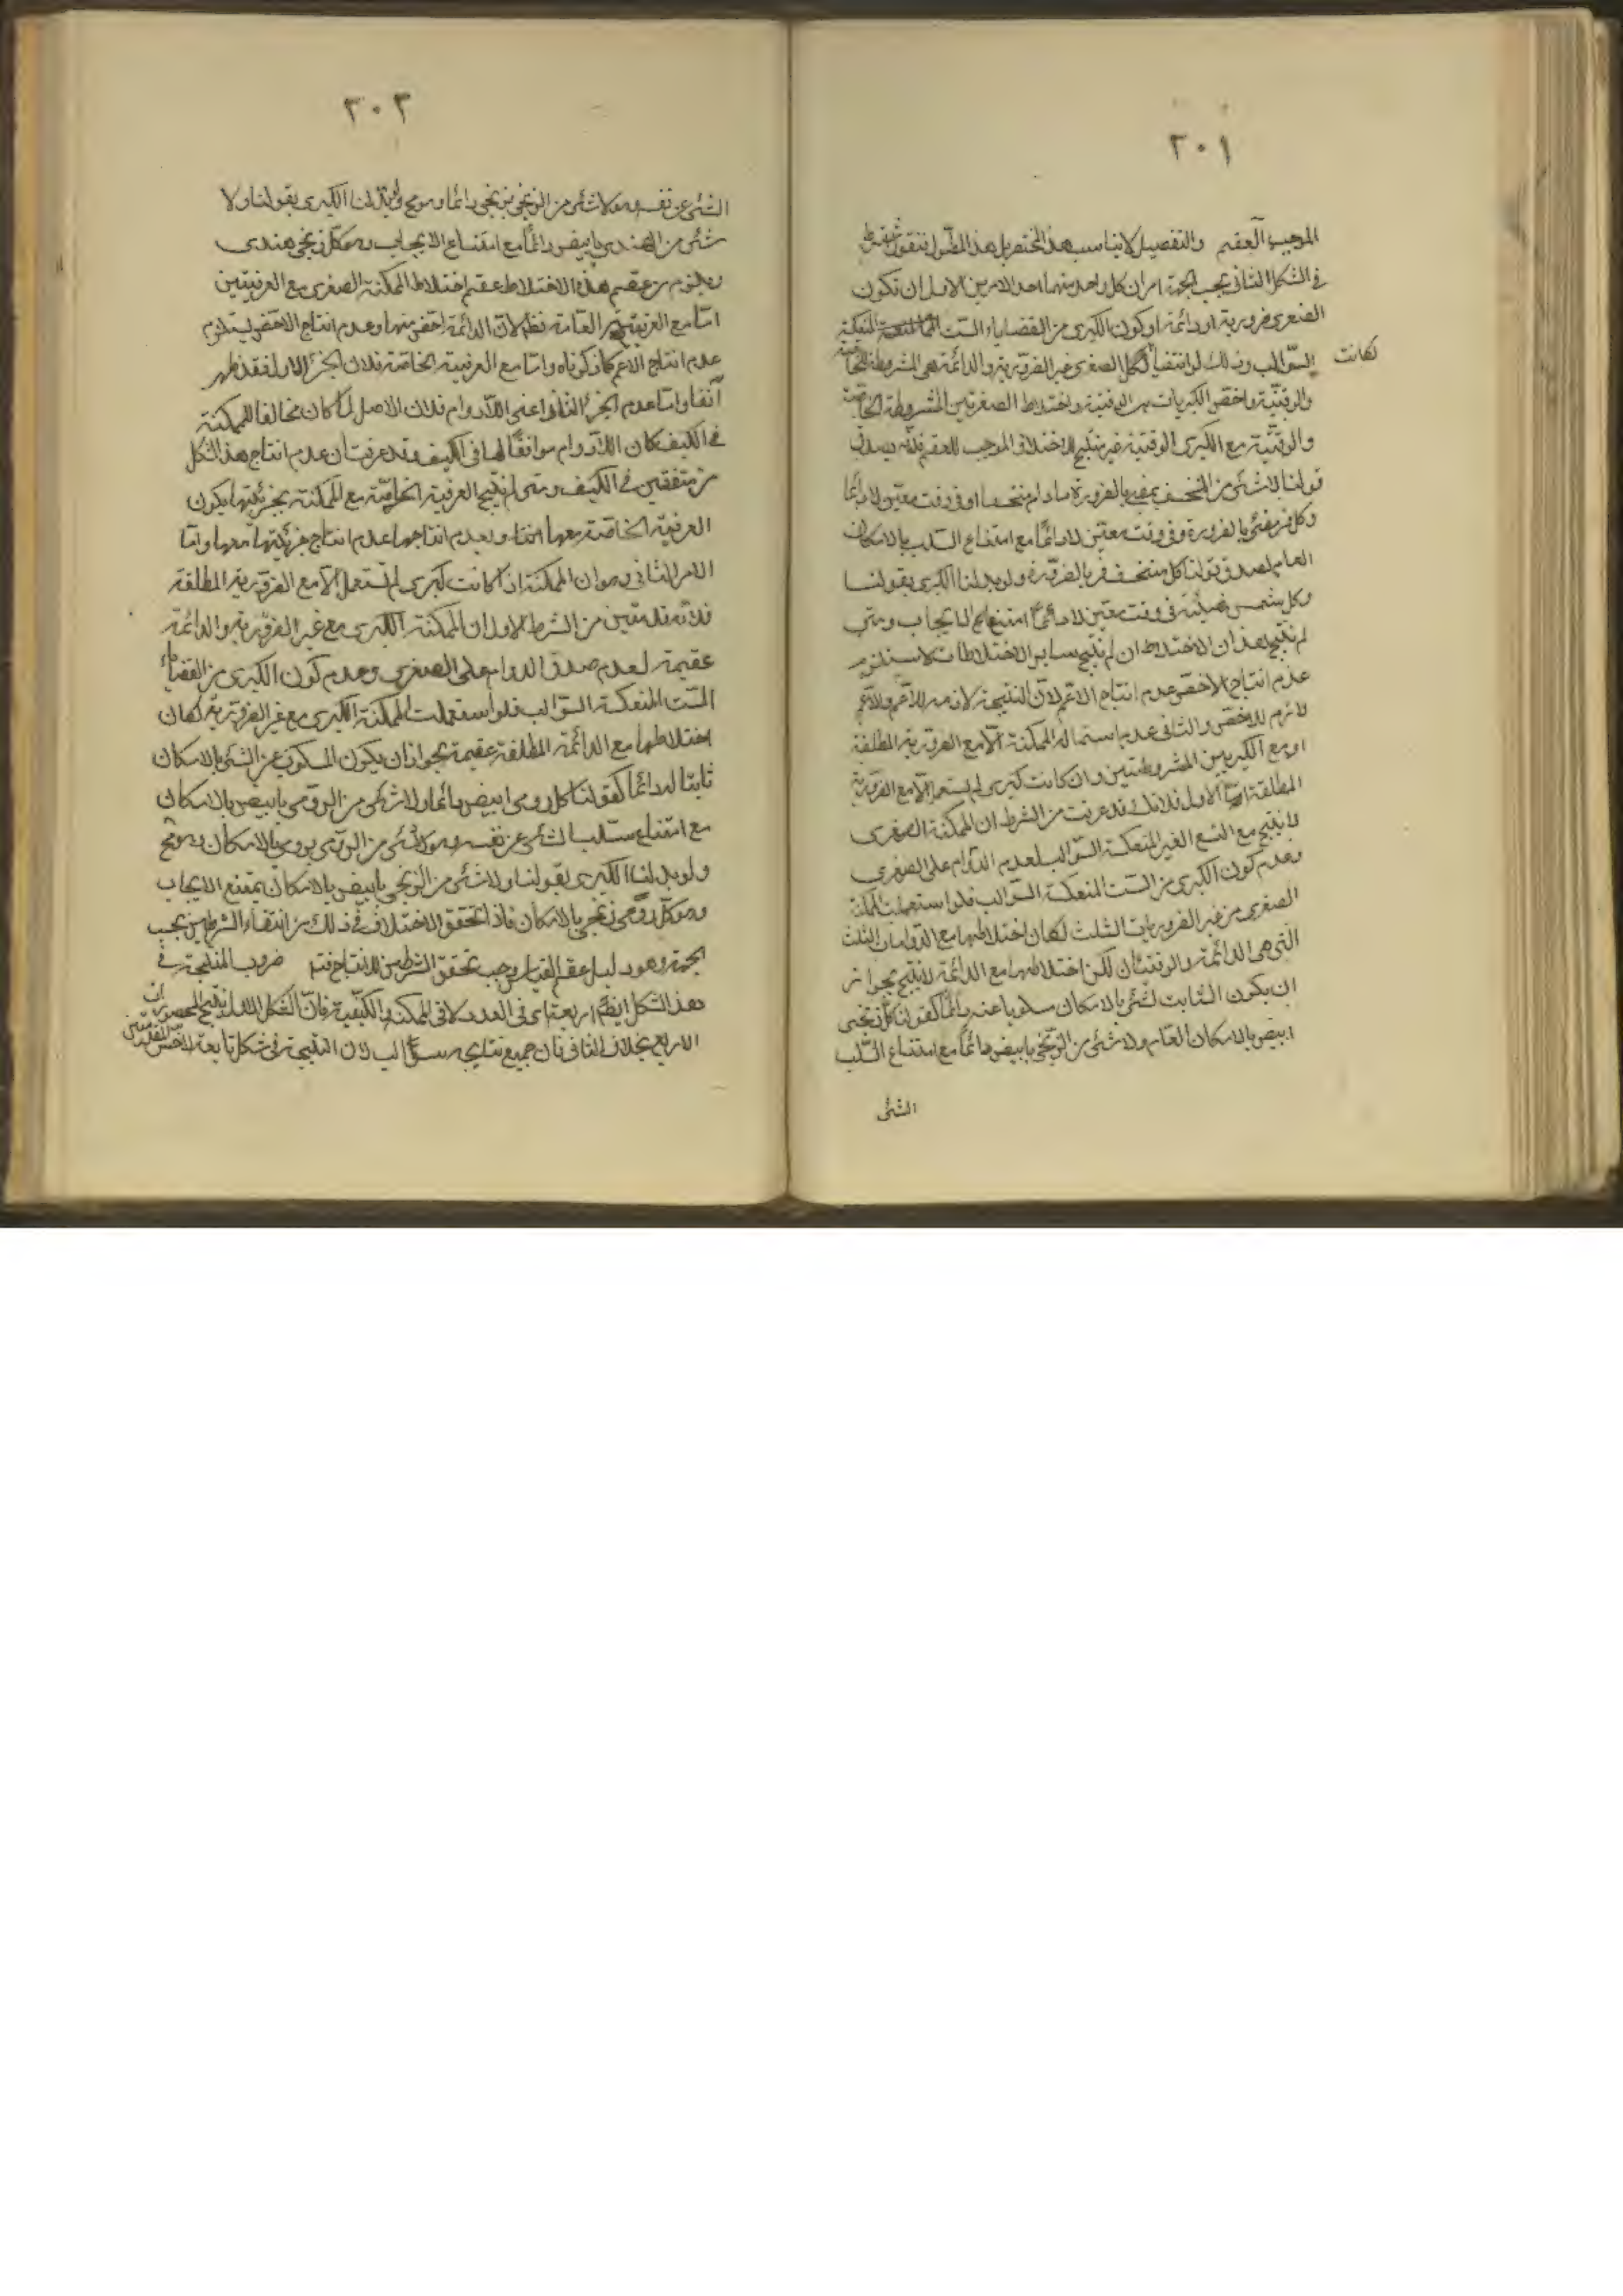 ٢٠١
الموجب العقم والتفصيل لا يناسب هذا المختصر بل هذا المطول فنقول شرط
في الشكل الثاني بحسب الجهة امران كل واحد منهما احد الامرين الاول ان تكون
الصغرى ضرورية او دائمة او كون الكبرى من القضايا الست المنعكسة
السوالب وذلك لو انتفيا لكانت الصغرى غير الضرورية والدائمة هي المشروطة الخاصة
والوقتية واخص الكبريات هي الوقتية واختلاط الصغريين المشروطة الخاصة
والوقتية مع الكبرى الوقتية غير منتج للاختلاف الموجب للعقم فانه يصدق
قولنا لا شئ من المنخسف بمضئ بالضرورة ما دام منخسفا او في وقت معين لا دائما
وكل قمر مضئ بالضرورة في وقت معين لا دائما مع امتناع السلب بالامكان
العام لصدق قولنا كل منخسف قمر بالضرورة ولو بدلنا الكبرى بقولنا
وكل شمس مضيئة في وقت معين لا دائما امتنع الايجاب ومتى
لم ينتج هذان الاختلاطان لم ينتج ساير الاختلاطات لاستلزم
عدم انتاج الاخص عدم انتاج الاعم لان النتيجة لازمة للاعم وللاعم
لازم للاخص والثاني عدم استعمال الممكنة الا مع الضرورية المطلقة
او مع الكبريين المشروطتين وان كانت كبرى لم تستعمل الا مع الضرورية
المطلقة اما الاول فلانك قد عرفت من الشرط ان الممكنة الصغرى
لا ينتج مع التسع الغير المنعكسة السوالب لعدم الدوام على الصغرى
وعدم كون الكبرى من الست المنعكسة السوالب فلو استعملت الممكنة
الصغرى من غير الضروريات الثلث لكان اختلاطها مع الدوامات الثلث
التي هي الدائمة والعرفيتان لكن اختلاطها مع الدائمة لا ينتج بجواز
ان يكون الثابت لشئ بالامكان مسلوبا عنه دائما كقولنا كل زنجي
ابيض بالامكان العام ولا شئ من الزنجي بابيض دائما مع امتناع السلب
الشئ
٢٠٢
الشئ عن نفسه وهو لا شئ من الزنجي بزنجي دائما وهو مح ولو بدلنا الكبرى بقولنا ولا
شئ من الهندي بابيض دائما مع امتناع الايجاب وهو كل زنجي هندي
ويلزم من عقم هذه الاختلاط عقم اختلاط الممكنة الصغرى مع العرفيتين
اما مع العرفية العامة فظ لان الدائمة اخص منها وعدم انتاج الاخص يستلزم
عدم انتاج الاعم كما ذكرناه واما مع العرفية الخاصة فلان الجزء الاول فقد ظهر
آنفا واما عدم الجزء الثاني اعني اللادوام فلان الاصل لما كان مخالفا للممكنة
في الكيف كان اللادوام موافقا لها في الكيف وقد عرفت ان عدم انتاج هذا الشكل
من متفقتين في الكيف ومتى لم ينتج العرفية الخاصة مع الممكنة بجزئيتها يكون
العرفية الخاصة معها عدم انتاجها عدم انتاج جزئيتها معها واما
الامر الثاني وهو ان الممكنة اذا كانت كبرى لم تستعمل الا مع الضرورية المطلقة
فلانه قد تبين من الشرط الاول ان الممكنة الكبرى مع غير الضرورية والدائمة
عقيمة لعدم صدق الدوام على الصغرى وعدم كون الكبرى من القضايا
الست المنعكسة السوالب فلو استعملت الممكنة الكبرى مع غير الضرورية لكان
اختلاطها مع الدائمة المطلقة عقيمة بجواز ان يكون المسلوب عن الشئ بالامكان
ثابتا له دائما كقولنا كل رومي ابيض دائما ولا شئ من الرومي بابيض بالامكان
مع امتناع سلب الشئ عن نفسه وهو لا شئ من الرومي برومي بالامكان وهو مح
ولو بدلنا الكبرى بقولنا ولا شئ من الزنجي بابيض بالامكان يمتنع الايجاب
وهو كل رومي زنجي بالامكان فاذا تحقق الاختلاف في ذلك من انتفاء الشرطين بحسب
الجهة وهو دليل عقم القياس وجب تحقق الشرطين للانتاج فتم ضروب المنتجة في
هذا الشكل ايضا اربعة اي في العدد لا في الممكنة والكيفية فان الشكل الاول ينتج المحصورات
الاربع بخلاف الثاني فان جميع نتايجه سوالب لان النتيجة في شكل تابعة لاخس المقدمتين